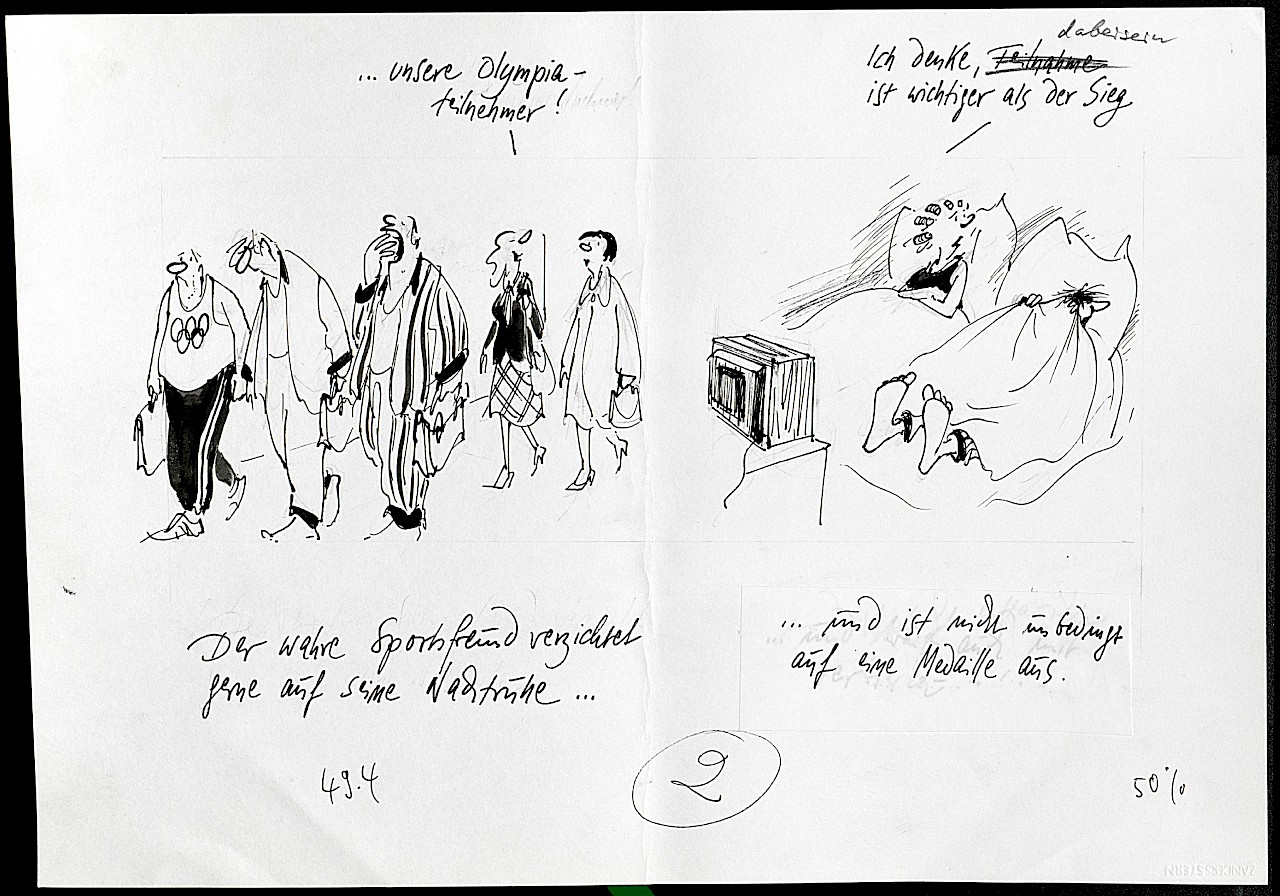 ... unsere Olympia-
teilnehmer!
dabeisein
Ich denke, Teilnahme
ist wichtiger als der Sieg
Der wahre Sportsfreund verzichtet
gerne auf seine Nachtruhe ...
... und ist nicht unbedingt
auf eine Medaille aus.
2
49.4
50%
ZANDERSSTERN